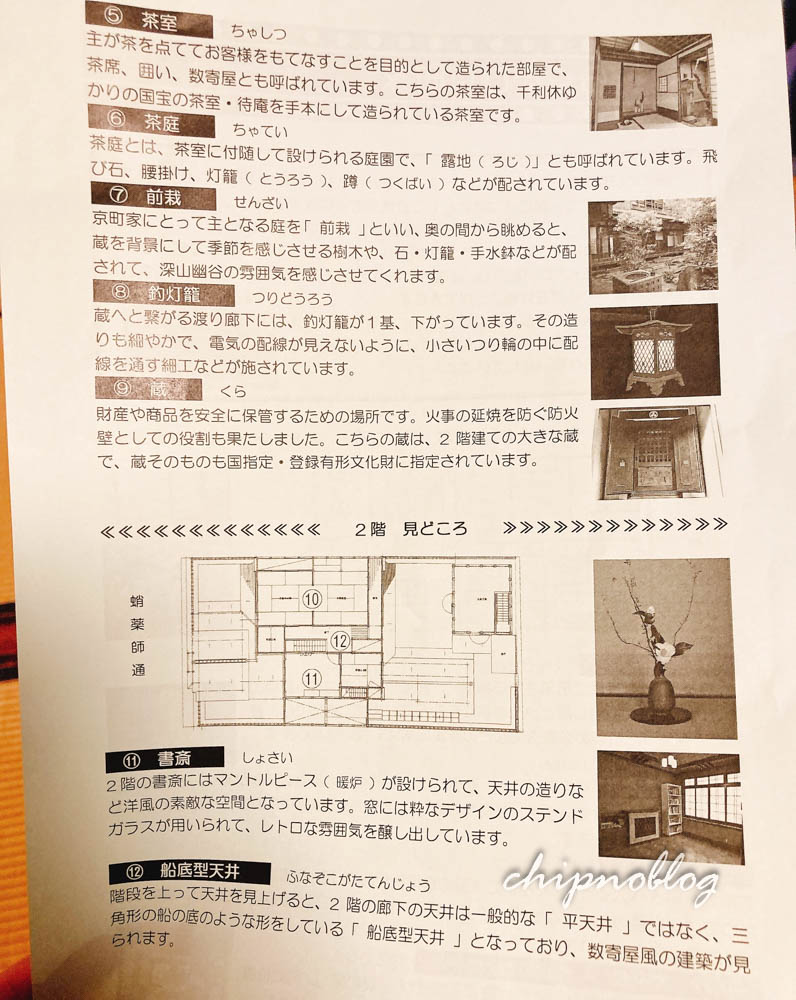 ⑤ 茶室 ちゃしつ
主が茶を点ててお客様をもてなすことを目的として造られた部屋で、
茶席、囲い、数寄屋とも呼ばれています。こちらの茶室は、千利休ゆ
かりの国宝の茶室・待庵を手本にして造られている茶室です。
⑥ 茶庭 ちゃてい
茶庭とは、茶室に付随して設けられる庭園で、「 露地（ ろじ ）」とも呼ばれています。飛
び石、腰掛け、灯籠（ とうろう ）、蹲（ つくばい ）などが配されています。
⑦ 前栽 せんざい
京町家にとって主となる庭を「 前栽 」といい、奥の間から眺めると、
蔵を背景にして季節を感じさせる樹木や、石・灯籠・手水鉢などが配
されて、深山幽谷の雰囲気を感じさせてくれます。
⑧ 釣灯籠 つりどうろう
蔵へと繋がる渡り廊下には、釣灯籠が１基、下がっています。その造
りも細やかで、電気の配線が見えないように、小さいつり輪の中に配
線を通す細工などが施されています。
⑨ 蔵 くら
財産や商品を安全に保管するための場所です。火事の延焼を防ぐ防火
壁としての役割も果たしました。こちらの蔵は、２階建ての大きな蔵
で、蔵そのものも国指定・登録有形文化財に指定されています。
≪≪≪≪≪≪≪≪≪≪≪ ２階 見どころ ≫≫≫≫≫≫≫≫≫≫≫
蛸薬師通
⑩
⑫
⑪
⑪ 書斎 しょさい
２階の書斎にはマントルピース（ 暖炉 ）が設けられて、天井の造りな
ど洋風の素敵な空間となっています。窓には粋なデザインのステンド
ガラスが用いられて、レトロな雰囲気を醸し出しています。
⑫ 船底型天井 ふなぞこがたてんじょう
階段を上って天井を見上げると、２階の廊下の天井は一般的な「 平天井 」ではなく、三
角形の船の底のような形をしている「 船底型天井 」となっており、数寄屋風の建築が見
られます。
chipnoblog